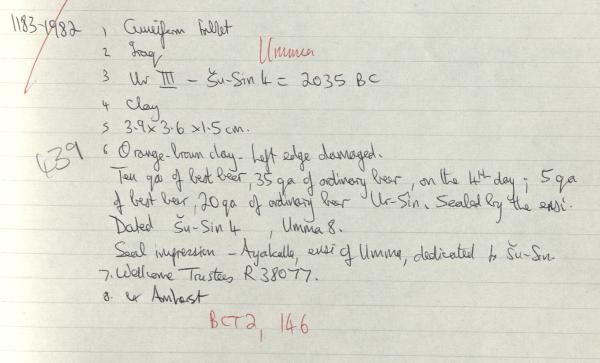 1183-1982 1 Cuneiform Tablet
2 Iraq Umma
3 Ur III - Šu-Sin 4 = 2035 BC
4 Clay
5 3.9 x 3.6 x 1.5 cm.
439 6 Orange-brown clay - Left edge damaged.
Ten qa of best beer, 35 qa of ordinary beer, on the 4th day; 5 qa
of best beer, 20 qa of ordinary beer Ur-Sin. Sealed by the ensi.
Dated Šu-Sin 4, Umma 8.
Seal impression - Ayakalla, ensi of Umma, dedicated to Šu-Sin
7. Wellcome Trustees R 38077.
8. ex Amherst
BCT2, 146